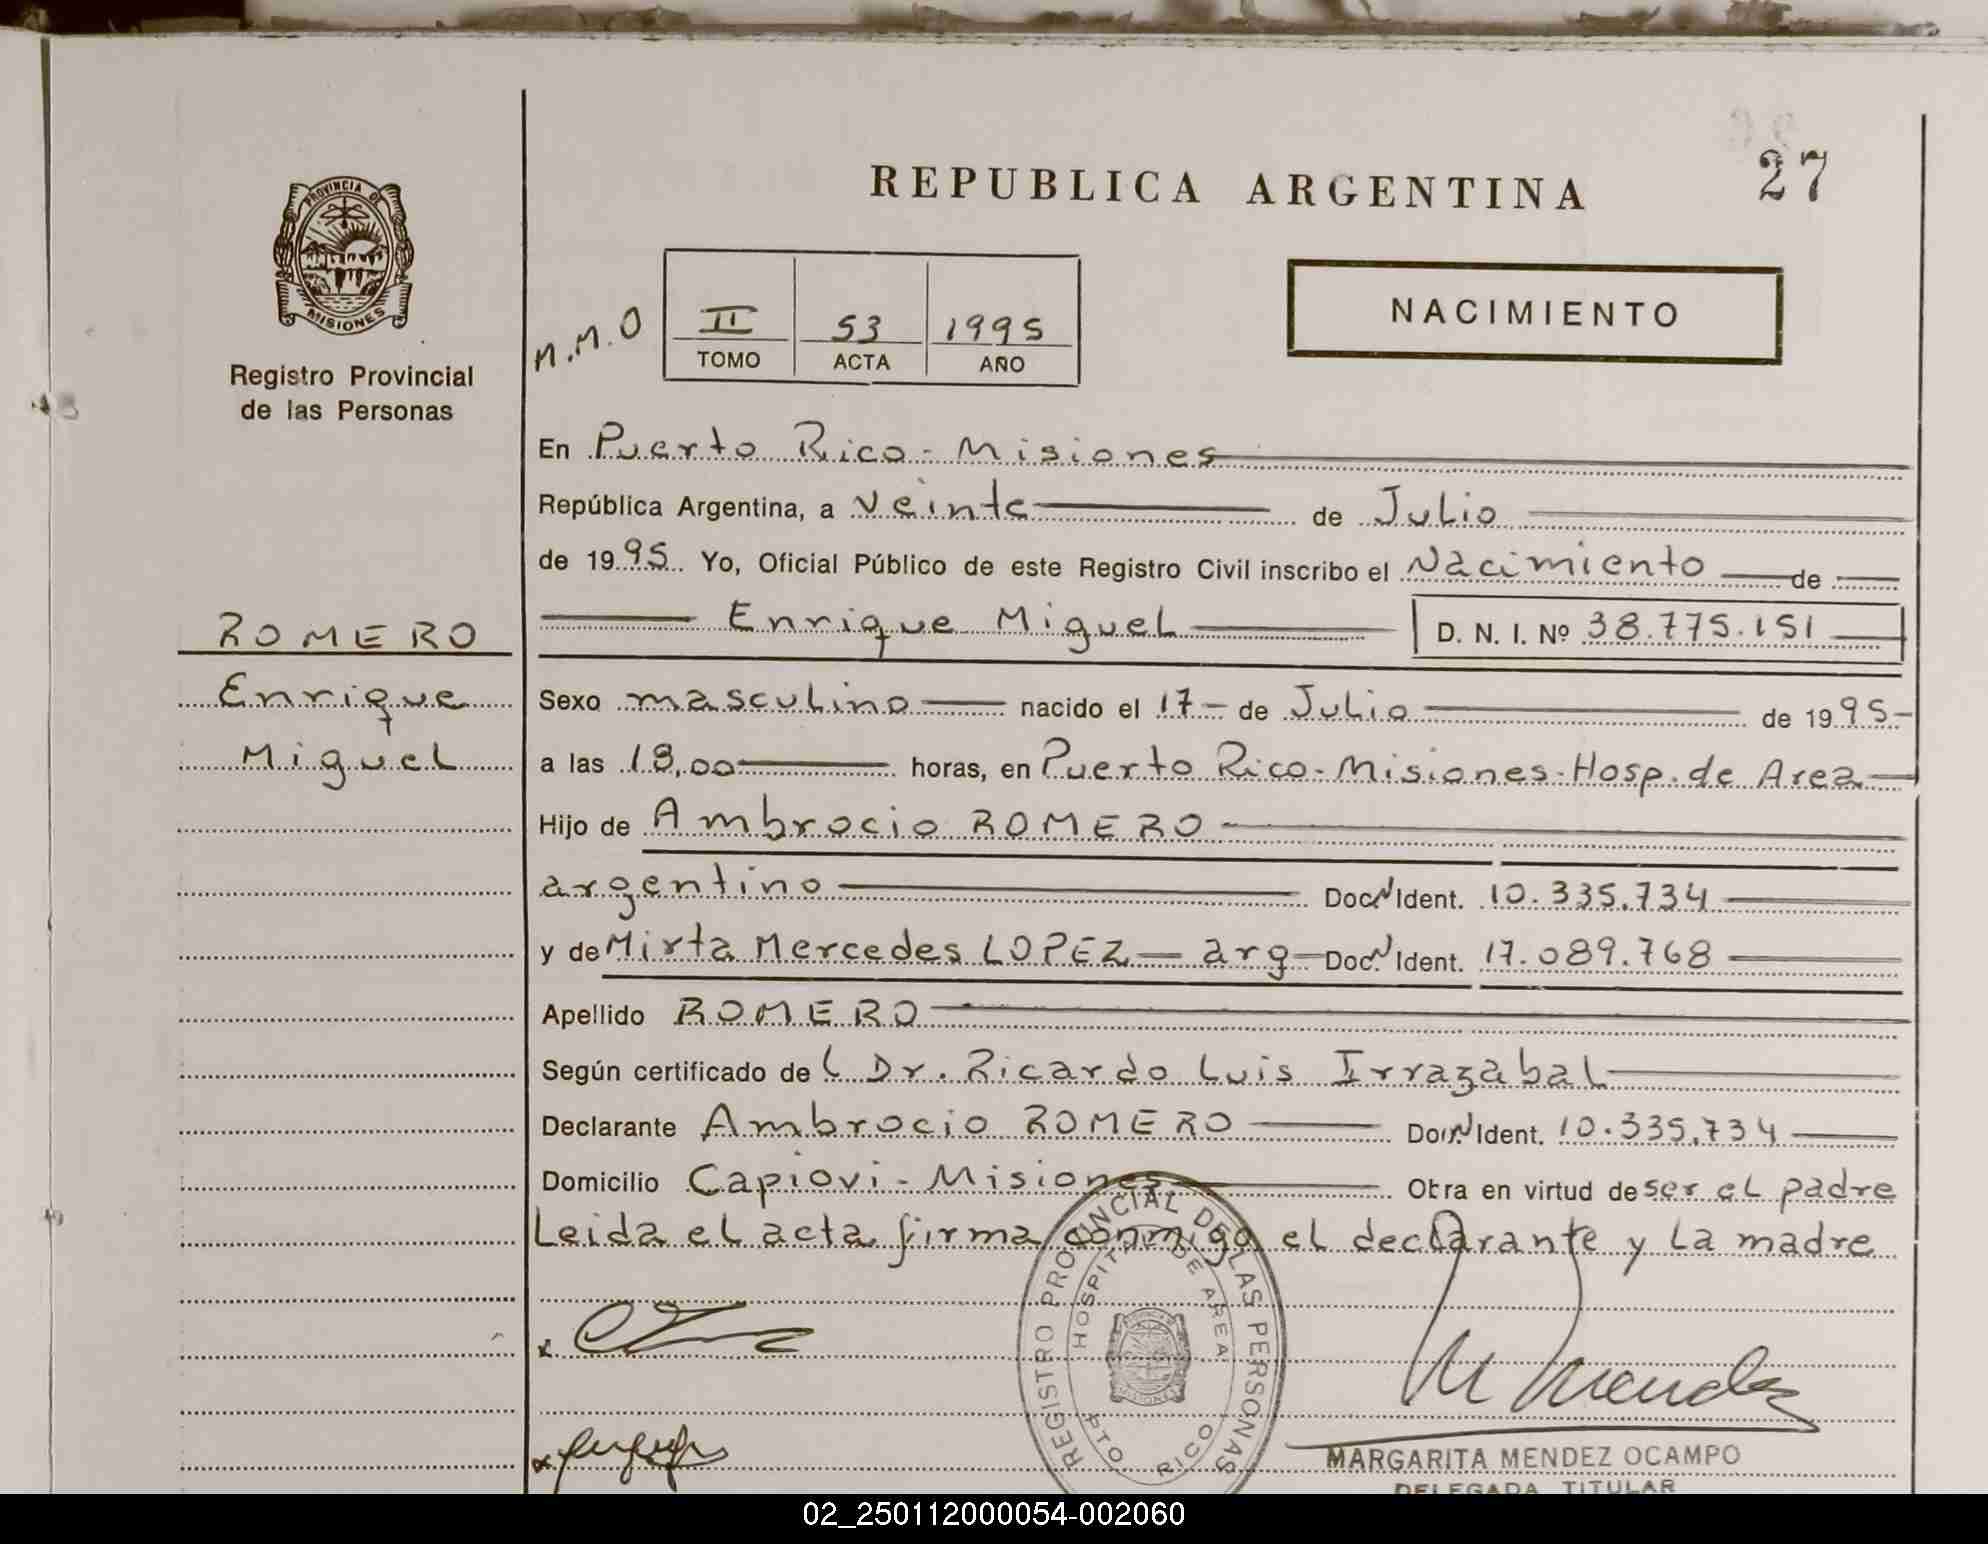 REPUBLICA ARGENTINA
27
PROVINCIA DE
MISIONES
Registro Provincial
de las Personas
M.M.O
II 53 1995
TOMO ACTA AÑO
NACIMIENTO
En Puerto Rico - Misiones
República Argentina, a veinte de Julio
de 1995 Yo, Oficial Público de este Registro Civil inscribo el Nacimiento de
Enrique Miguel D. N. I. Nº 38.775.151
ROMERO
Enrique
Miguel
Sexo masculino nacido el 17 - de Julio de 1995 -
a las 18,00 horas, en Puerto Rico - Misiones - Hosp. de Area
Hijo de Ambrocio ROMERO
argentino Doc. N Ident. 10.335.734
y de Mirta Mercedes LOPEZ - arg - Doc. N Ident. 17.089.768
Apellido ROMERO
Según certificado del Dr. Ricardo Luis Irrazabal
Declarante Ambrocio ROMERO Doc. N Ident. 10.335.734
Domicilio Capiovi - Misiones Obra en virtud de ser el padre
Leida el acta firma conmigo el declarante y la madre
REGISTRO PROVINCIAL DE LAS PERSONAS
HOSPITAL DE AREA
PTO RICO
M Mendez
MARGARITA MENDEZ OCAMPO
DELEGADA TITULAR
02_250112000054-002060